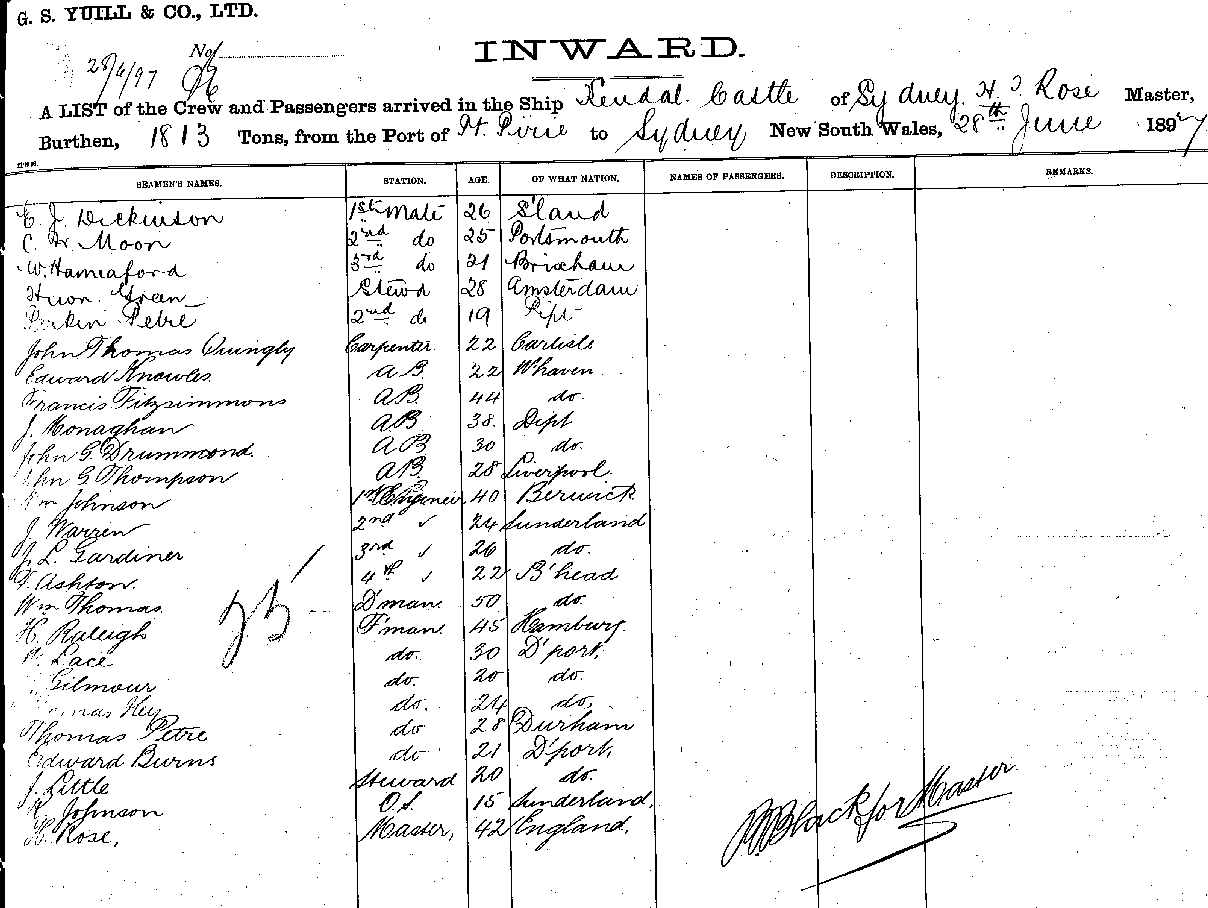 G. S. YUILL & CO., LTD.
No.
28/6/97
INWARD.
A LIST of the Crew and Passengers arrived in the Ship Kendal Castle of Sydney, H. J. Rose Master,
Burthen, 1813 Tons, from the Port of Pt. Pirie to Sydney New South Wales, 28th June 1897
SEAMEN'S NAMES. STATION. AGE. OF WHAT NATION. NAMES OF PASSENGERS. DESCRIPTION. REMARKS.
E. J. Dickinson 1st Mate 26 S'land
C. Moon 2nd do 25 Portsmouth
W. Hannaford 3rd do 21 Brixham
Green Stewd 28 Amsterdam
Petre 2nd do 19
John Thomas Quingly Carpenter 22 Carlisle
Edward Knowles AB 22 W'haven
Francis Fitzsimmons AB 44 do.
J. Monaghan AB 38. Dipt
John G. Drummond. AB 30 do.
John G Thompson AB. 28 Liverpool.
Wm Johnson 1st Engineer 40 Berwick
J. Warren 2nd 24 Sunderland
J. L. Gardiner 3rd 26 do.
Ashton. 4th 22 B'head
Wm Thomas. D'man. 50 do.
H. Raleigh F'man. 45 Hamburg.
Lace do. 30 D'port.
Gilmour do. 20 do.
Thomas Hey do. 24 do.
Thomas Petre do 28 Durham
Edward Burns do 21 D'port.
J. Little Steward 20 do.
Johnson O.S. 15 Sunderland.
H. Rose. Master, 42 England.
25
Black for Master